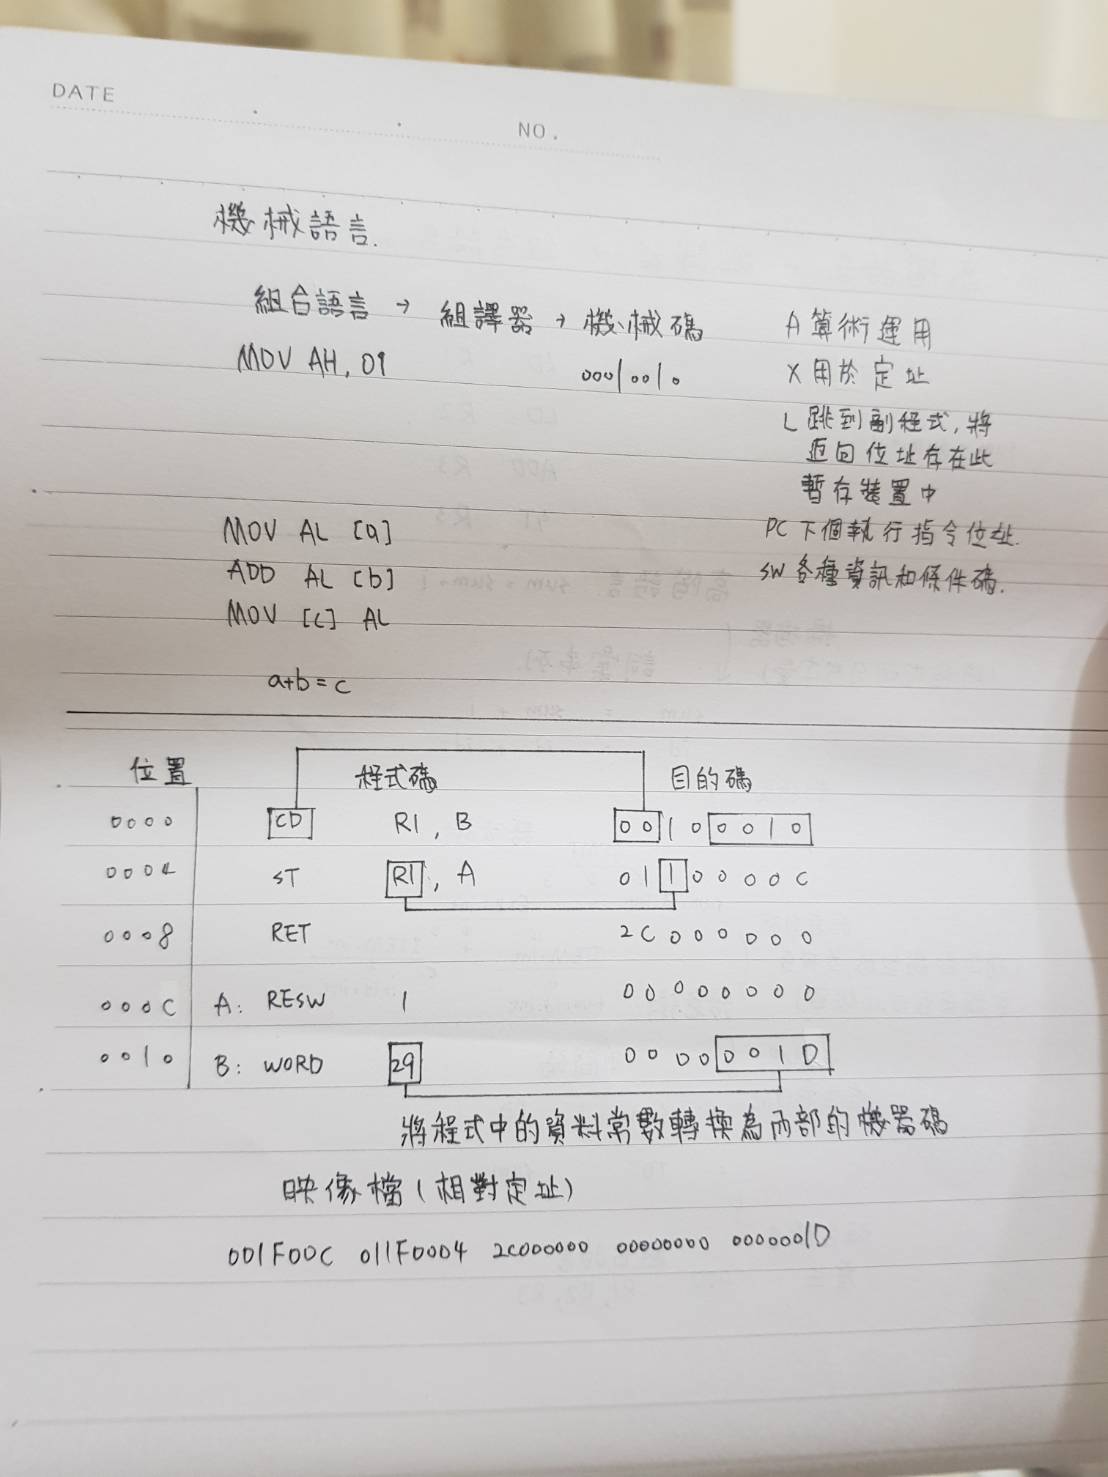 DATE
NO.
機械語言.
組合語言 → 組譯器 → 機械碼
MOV AH, 01
00010010
A 算術運用
X 用於定址
L 跳到副程式, 將
返回位址存在此
暫存裝置中
PC 下個執行指令位址.
SW 各種資訊和條件碼.
MOV AL [a]
ADD AL [b]
MOV [c] AL
a+b = c
位置 程式碼 目的碼
0000 CD R1, B 00100010
0004 ST R1, A 0110000C
0008 RET 2C000000
000C A: RESW 1 00000000
0010 B: WORD 29 0000001D
將程式中的資料常數轉換為內部的機器碼
映像檔(相對定址)
001F00C 011F0004 2C000000 00000000 0000001D